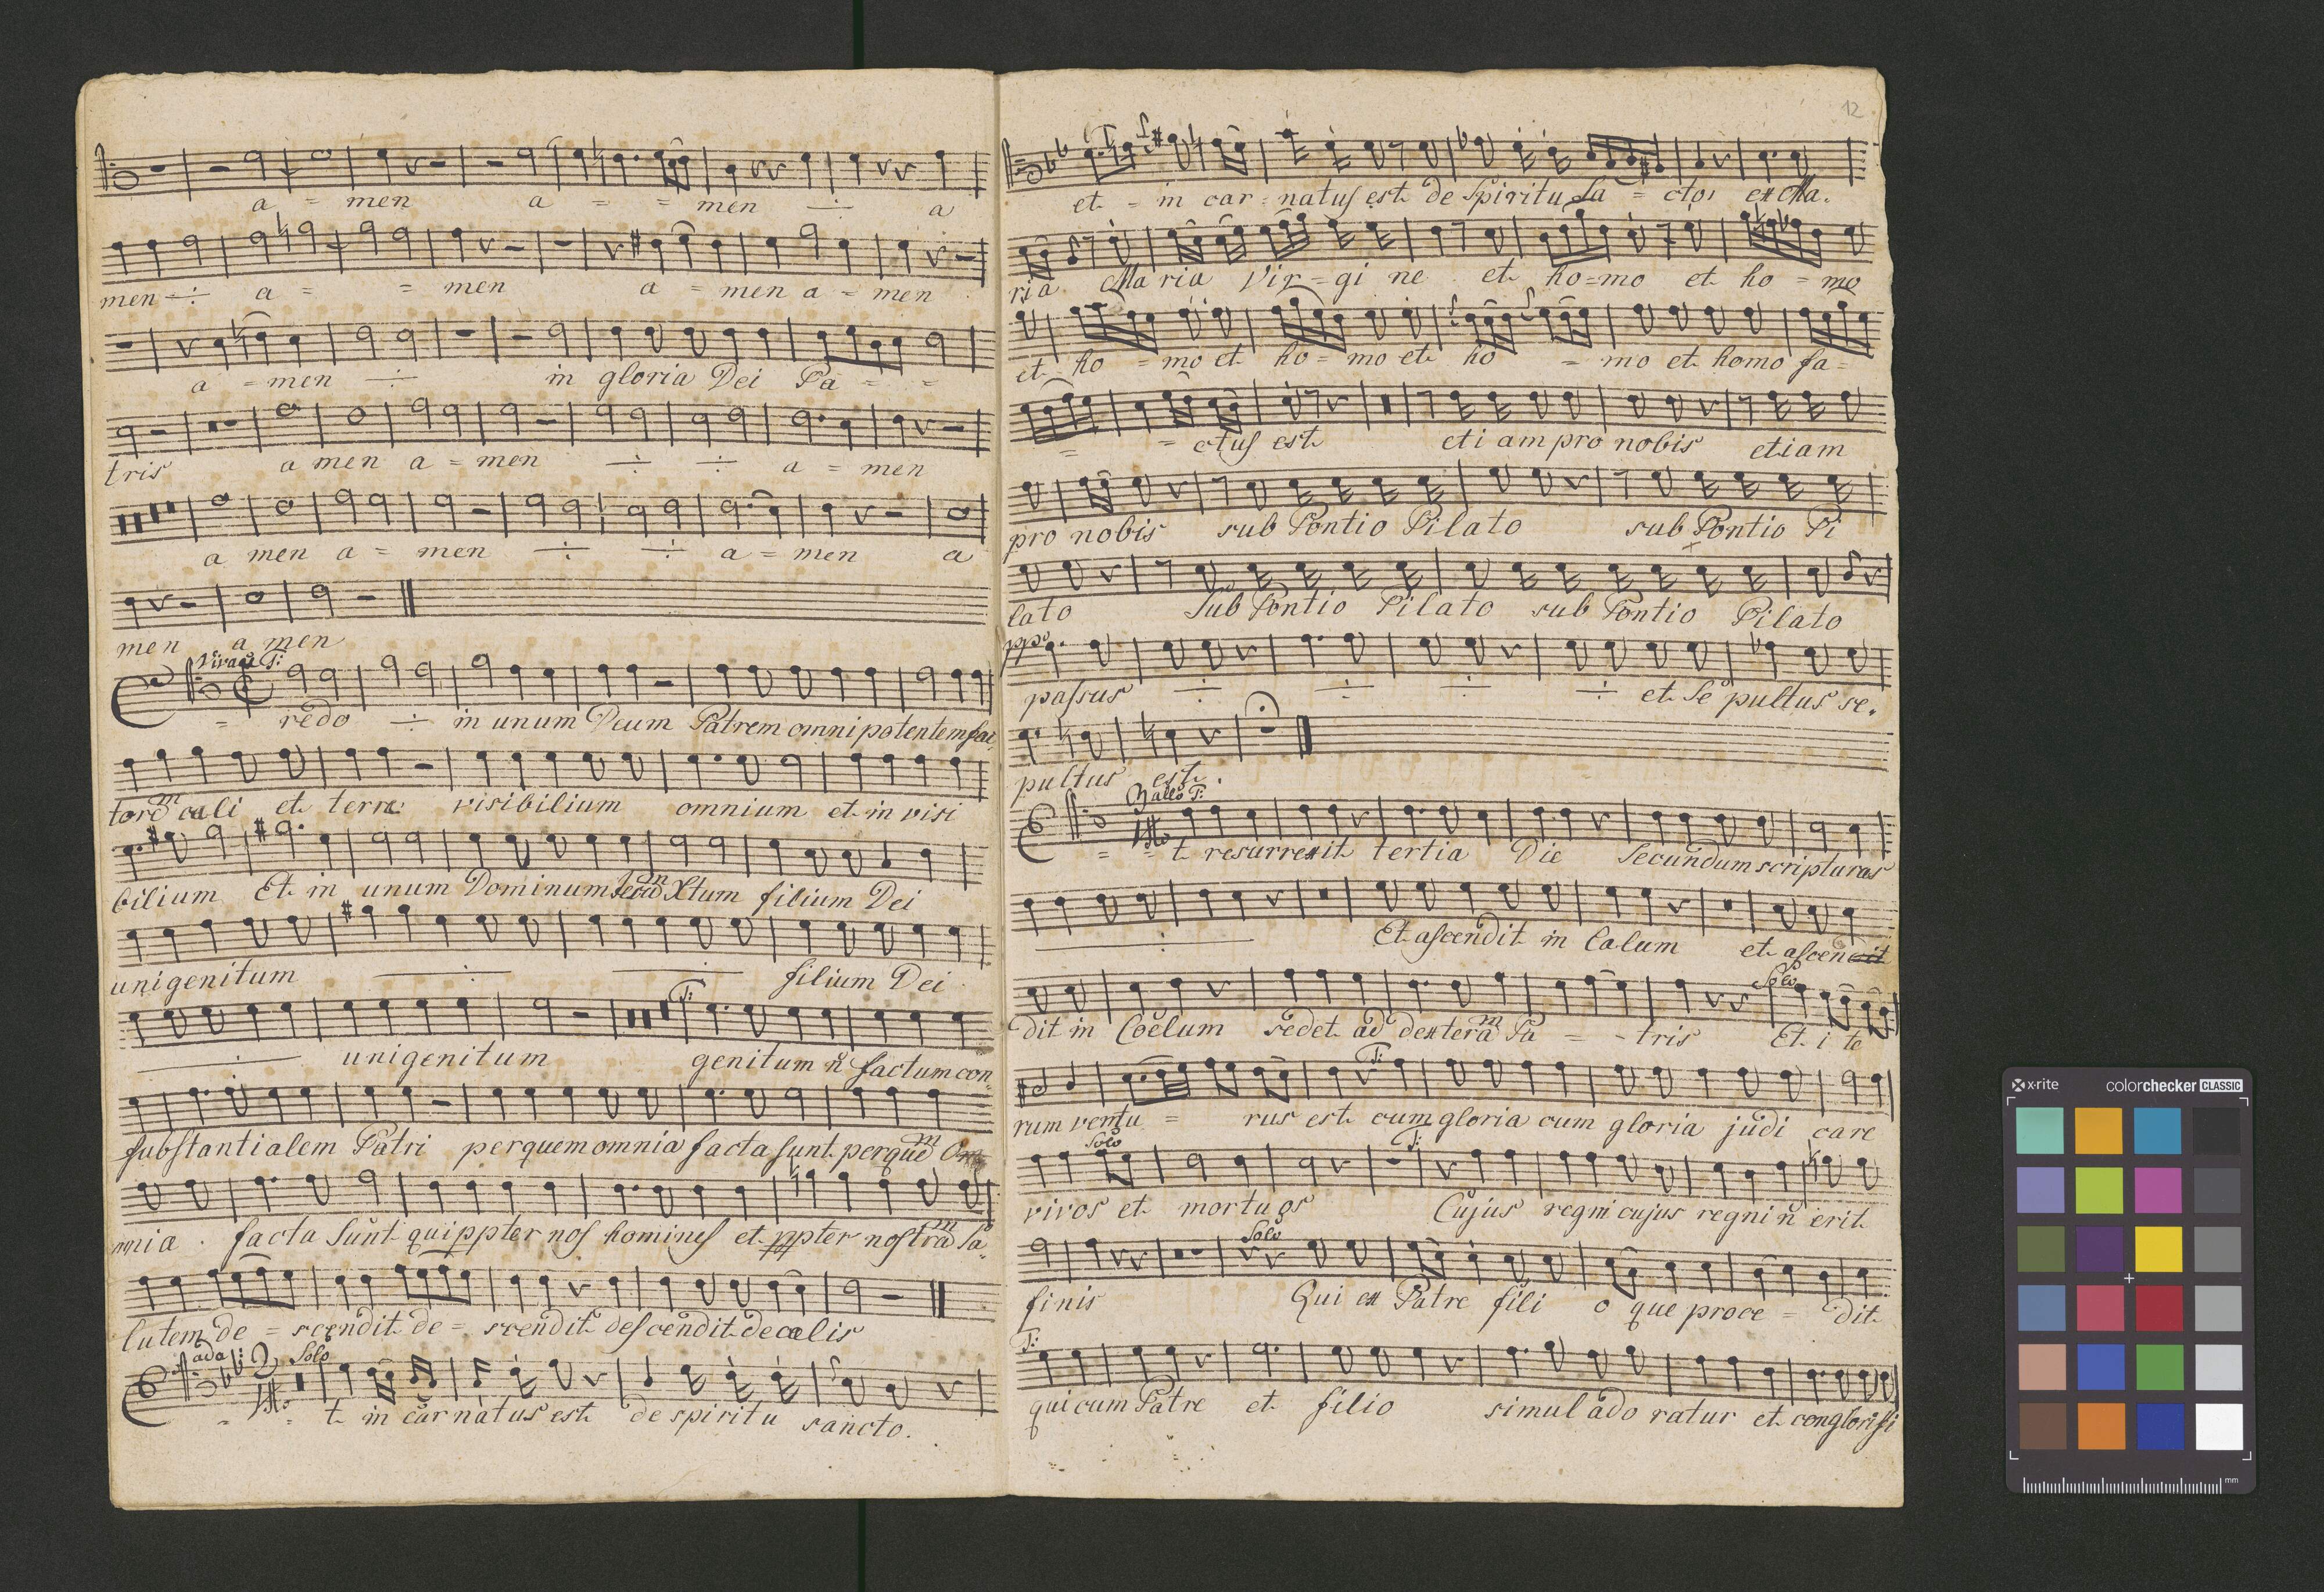 a = men a = = men ÷ a
men ÷ a = = men a = men a = men
a = men ÷ in gloria Dei Pa = =
tris a men a = men ÷ ÷ a = men
a men a = men ÷ ÷ a = men a
men a men
Vivace T:
= redo ÷ in unum Deum Patrem omnipotentem fac
torem cæli et terræ visibilium omnium et in visi
bilium Et in unum Dominum Xtum filium Dei
unigenitum ÷ ÷ filium Dei
T:
÷ unigenitum genitum n̄ factum con=
substantialem Patri per quem omnia facta sunt per quem Om
mnia. facta sunt qui ppter nos homines et ppter nostram sa=
lutem de = scendit de = scendit descendit de cælis
ada: Solo
= = t in carnatus est de spiritu sancto.
12
T:
et = in car = natus est de Spiritu Sa = cto, ex Ma.
ria Maria Vir = gi ne et ho = mo et ho = mo
et ho = mo et ho = mo et ho = mo et homo fa=
= = ctus est eti am pro nobis etiam
pro nobis sub Pontio Pilato sub Pontio Pi
lato Sub Pontio Pilato sub Pontio Pilato
ppo
passus ÷ ÷ ÷ ÷ et Se pultus se.
pultus est.
T:
= = t resurrexit tertia Die Secundum scripturas
÷ Et ascendit in Cælum et ascen
Solo
dit in Coelum sedet ad dexteram Pa = - tris Et i te
T:
rum ventu = rus est cum gloria cum gloria judi care
Solo T:
vivos et mortuos Cujus regni cujus regni n̄ erit
Solo
finis Qui ex Patre fili o que proce = dit
T:
qui cum Patre et filio simul ado ratur et conglorifi
x-rite colorchecker CLASSIC
mm